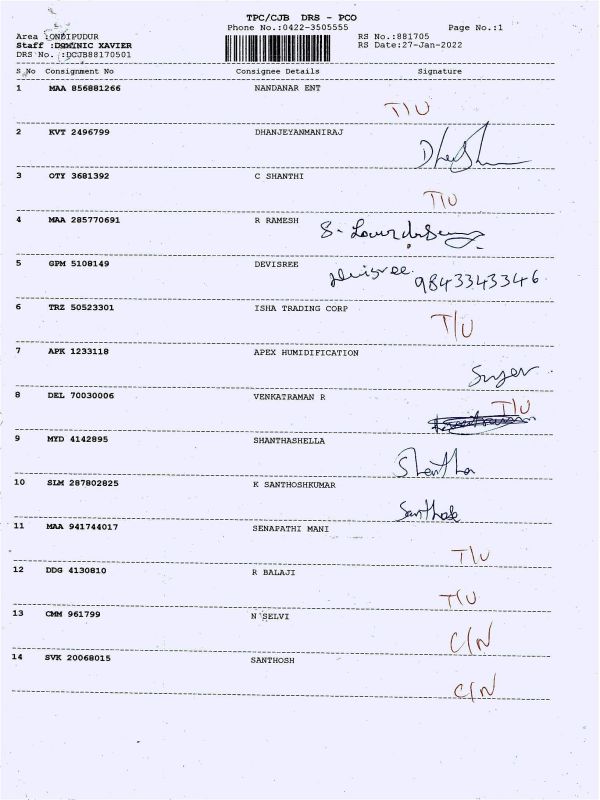 TPC/CJB DRS - PCO
Phone No.:0422-3505555 Page No.:1
Area :ONDIPUDUR RS No.:881705
Staff :DOMINIC XAVIER RS Date:27-Jan-2022
DRS No. :DCJB88170501
S No Consignment No Consignee Details Signature
1 MAA 856881266 NANDANAR ENT
T/U
2 KVT 2496799 DHANJEYANMANIRAJ
3 OTY 3681392 C SHANTHI
T/U
4 MAA 285770691 R RAMESH
5 GPM 5108149 DEVISREE
Devisree 9843343346
6 TRZ 50523301 ISHA TRADING CORP
T/U
7 APK 1233118 APEX HUMIDIFICATION
8 DEL 70030006 VENKATRAMAN R
T/U
9 MYD 4142895 SHANTHASHELLA
Shantha
10 SLM 287802825 K SANTHOSHKUMAR
11 MAA 941744017 SENAPATHI MANI
T/U
12 DDG 4130810 R BALAJI
T/U
13 CMM 961799 N SELVI
C/N
14 SVK 20068015 SANTHOSH
C/N